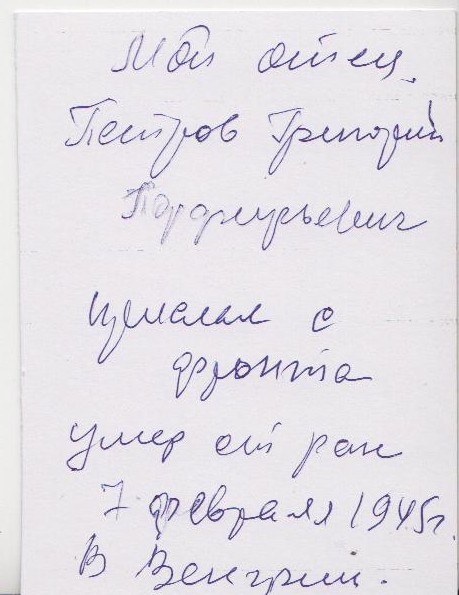 Мой отец.
Петров Григорий
Порфирьевич
прислал с
фронта
умер от ран
7 февраля 1945г.
В Венгрии.